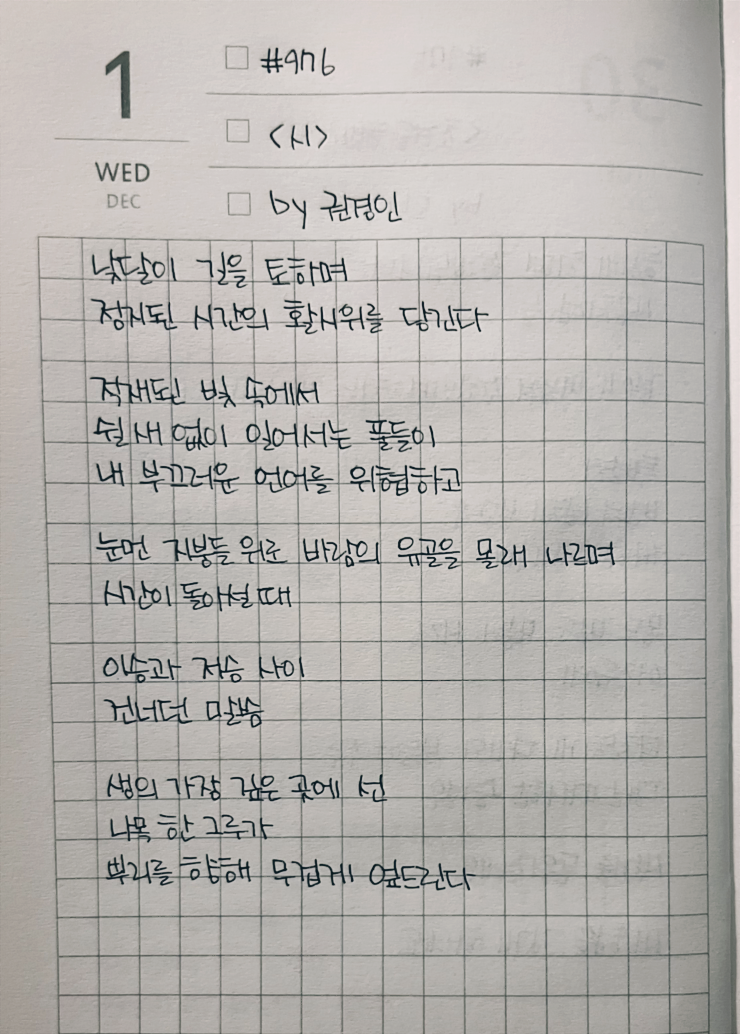 1
WED
DEC
#976
<시>
by 권경인
낮달이 길을 토하며
정지된 시간의 활시위를 당긴다
적재된 빛 속에서
쉴 새 없이 일어서는 풀들이
내 부끄러운 언어를 위협하고
눈먼 지붕들 위로 바람의 유골을 몰래 나르며
시간이 돌아설 때
이승과 저승 사이
건너던 말씀
생의 가장 깊은 곳에 선
나목 한 그루가
뿌리를 향해 무겁게 엎드린다